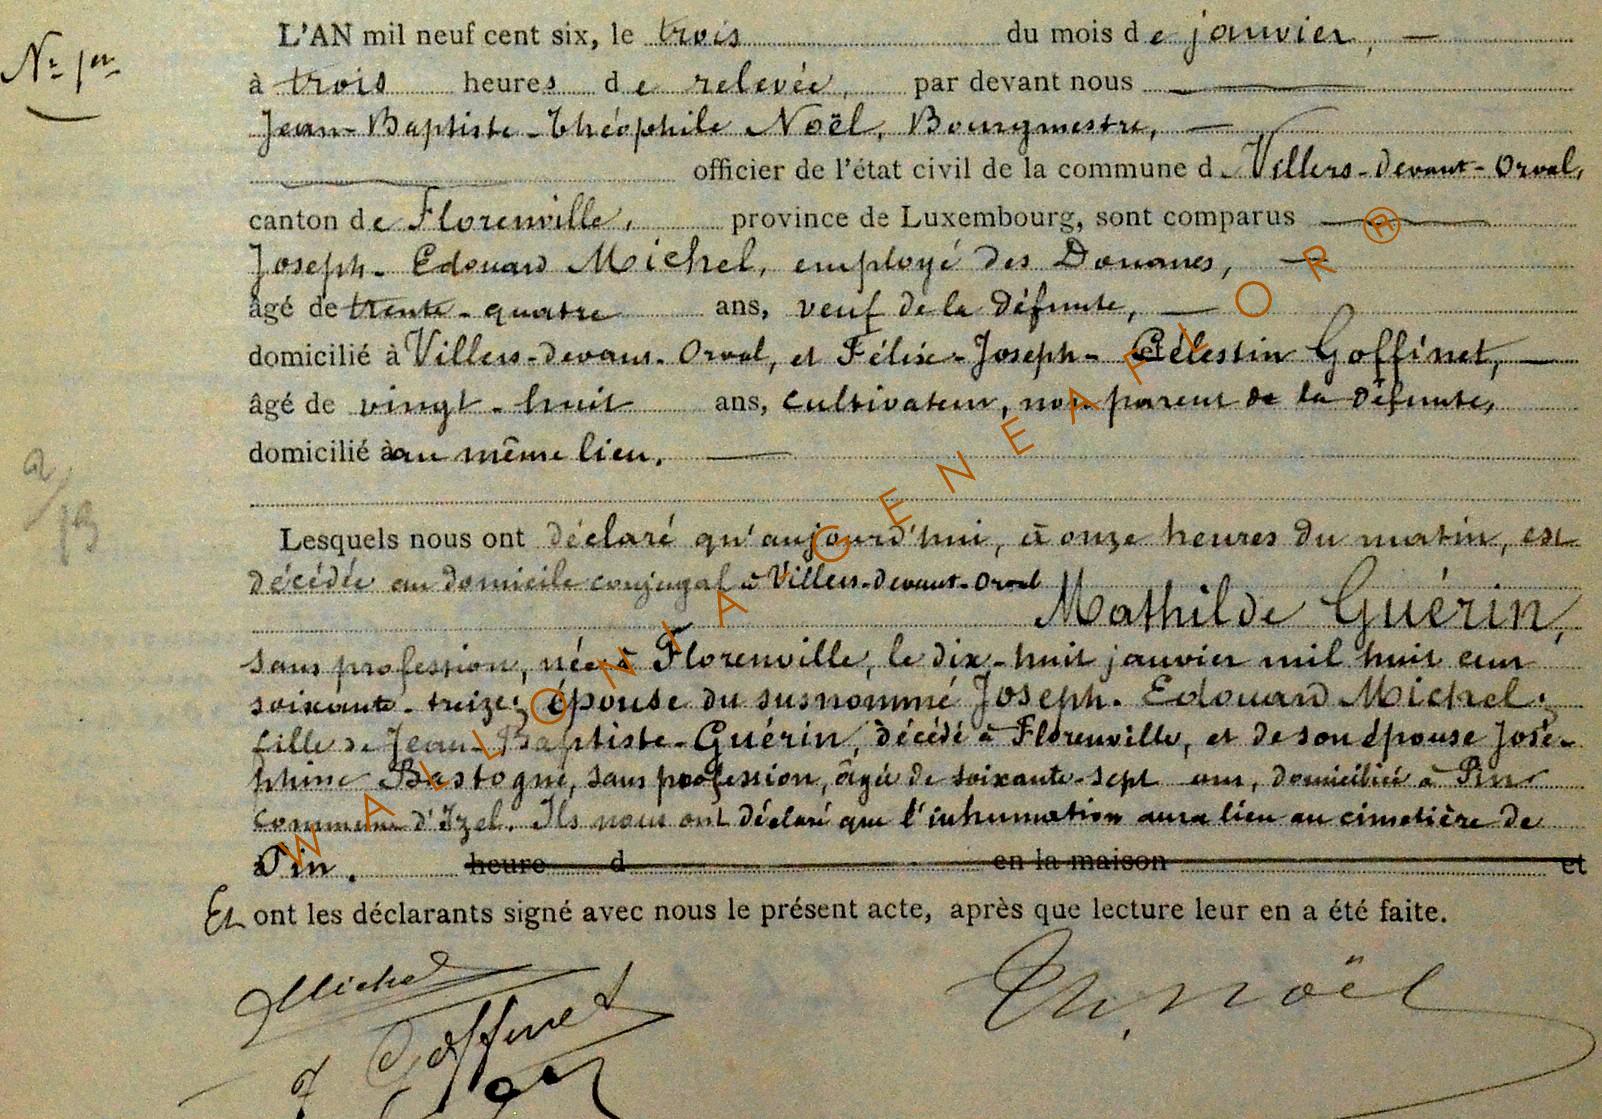 N° 1er
L'AN mil neuf cent six, le trois du mois de janvier,
à trois heures de relevée, par devant nous
Jean-Baptiste-Théophile Noël, Bourgmestre,
officier de l'état civil de la commune d Villers-devant-Orval,
canton de Florenville, province de Luxembourg, sont comparus
Joseph-Edouard Michel, employé des Douanes,
âgé de trente-quatre ans, veuf de la défunte,
domicilié à Villers-devant-Orval, et Félix-Joseph-Célestin Goffinet,
âgé de vingt-huit ans, cultivateur, non parent de la défunte,
domicilié au même lieu.
2/13
Lesquels nous ont déclaré qu'aujourd'hui, à onze heures du matin, est
décédée au domicile conjugal à Villers-devant-Orval
Mathilde Guérin,
sans profession, née à Florenville, le dix-huit janvier mil huit cent
soixante-treize; épouse du susnommé Joseph-Edouard Michel;
fille de Jean-Baptiste-Guérin, décédé à Florenville, et de son épouse José-
phine Bastogne, sans profession, âgée de soixante-sept ans, domiciliée à Pin
commune d'Izel. Ils nous ont déclaré que l'inhumation aura lieu au cimetière de
Pin. heure d en la maison et
Et ont les déclarants signé avec nous le présent acte, après que lecture leur en a été faite.
Michel
Goffinet
Th. Noël
WALLONIA GENEAFLOR ®